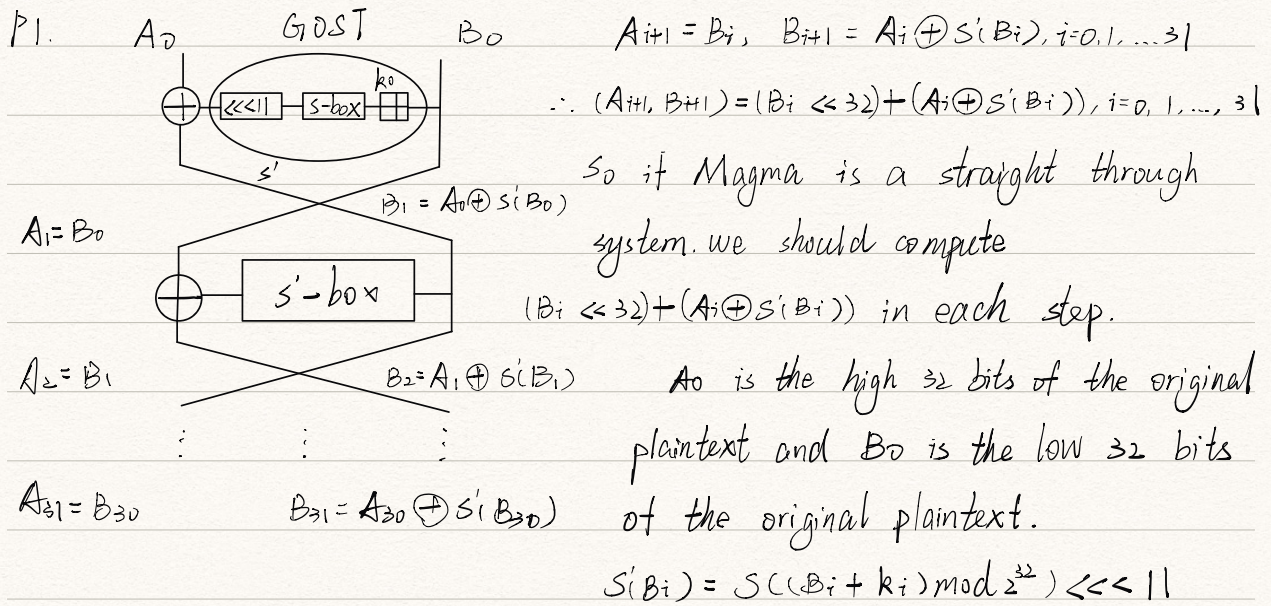 P1. A₀ GOST B₀
k₀
<<<11 s-box
s'
B₁ = A₀⊕s'(B₀)
A₁=B₀
s'-box
A₂=B₁ B₂=A₁⊕s'(B₁)
A₃₁=B₃₀ B₃₁=A₃₀⊕s'(B₃₀)
Aᵢ₊₁=Bᵢ, Bᵢ₊₁ = Aᵢ⊕S'(Bᵢ), i=0,1,...31
∴ (Aᵢ₊₁, Bᵢ₊₁)=(Bᵢ <<32)+(Aᵢ⊕S'(Bᵢ)), i=0, 1,..., 31
So if Magma is a straight through
system. we should compute
(Bᵢ <<32)+(Aᵢ⊕S'(Bᵢ)) in each step.
A₀ is the high 32 bits of the original
plaintext and B₀ is the low 32 bits
of the original plaintext.
S'(Bᵢ) = S((Bᵢ + kᵢ) mod 2³²) <<< 11